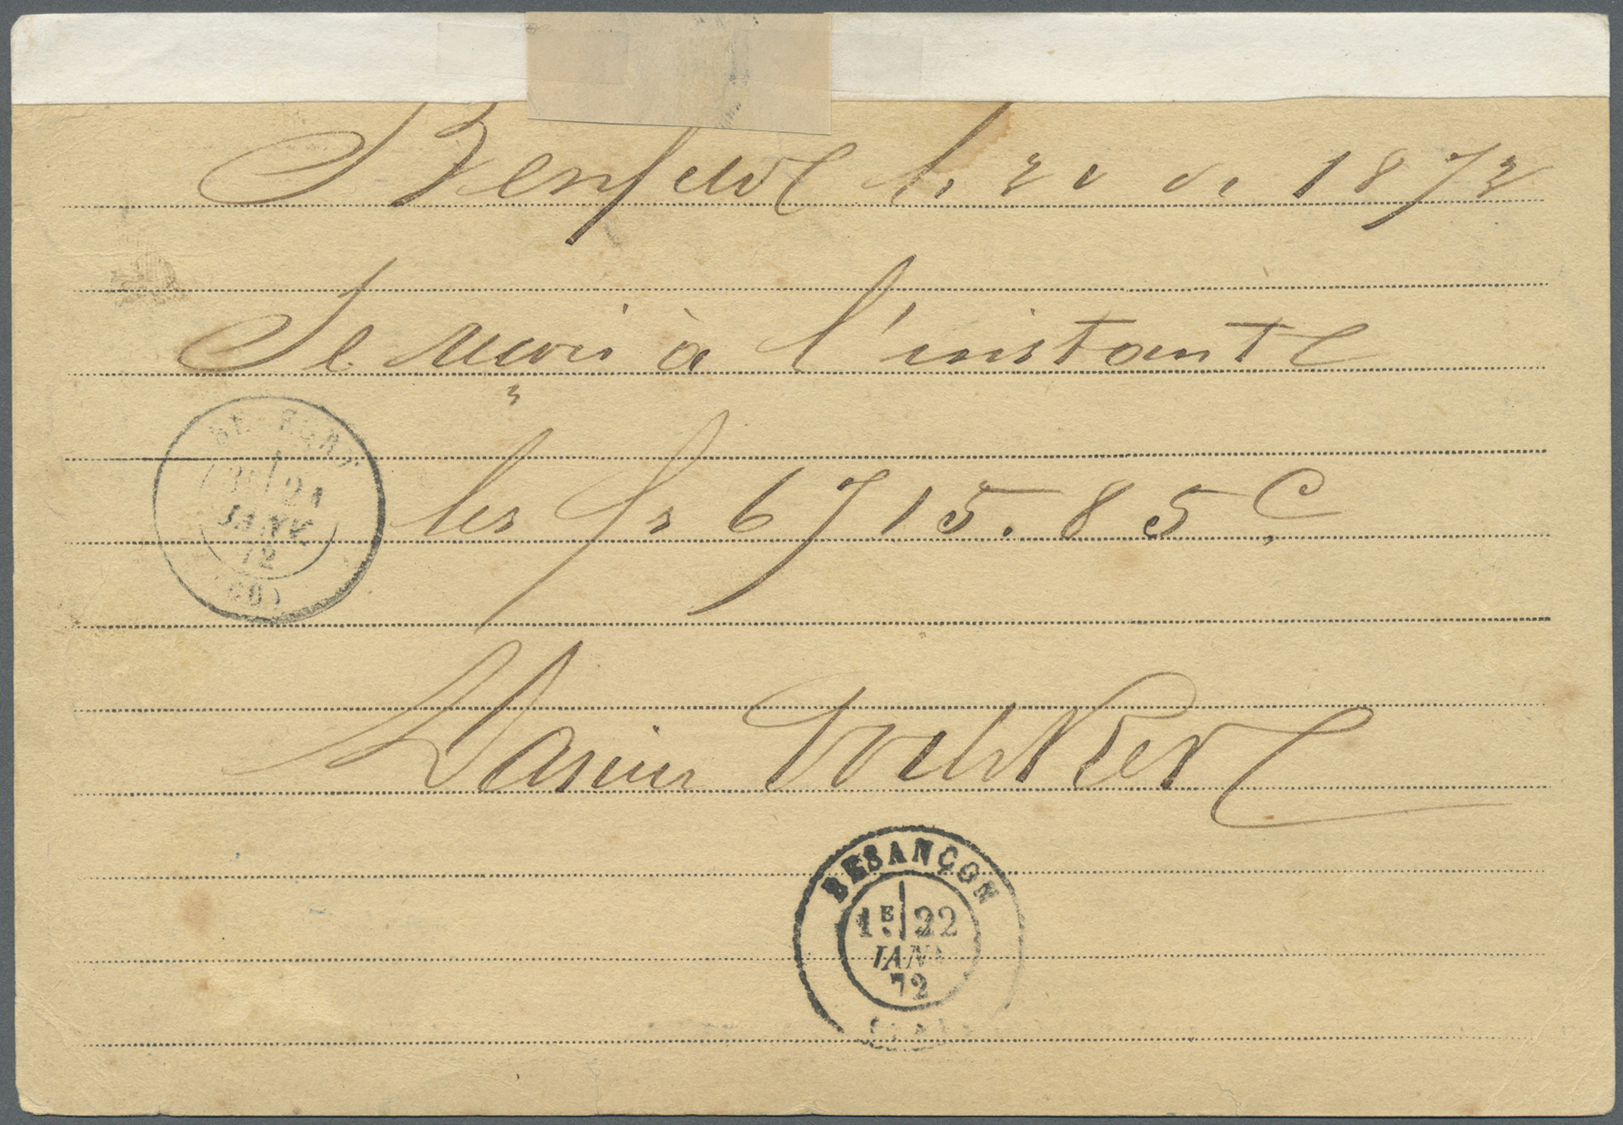 Benfeld le 20 de 1872
Je reçois à l'instante
les fr 6715.85 C.
BELFORT
21
JANV.
72
(66)
BESANÇON
1E 22
JANV
72